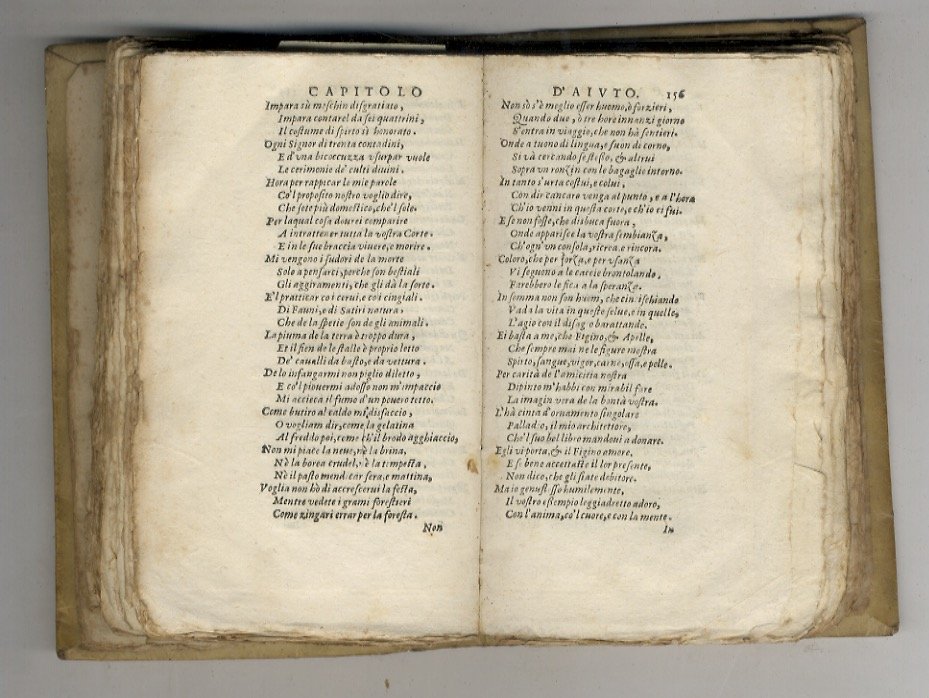 CAPITOLO
Impara tù meschin disgratiato,
Impara contarel da sei quattrini,
Il costume di spirto sì honorato.
Ogni Signor di trenta contadini,
E d'vna bicoccuzza vsurpar vuole
Le cerimonie de' culti diuini.
Hora per rappicar le mie parole
Co'l proposito nostro voglio dire,
Che sete più domestico, che'l sole.
Per laqual cosa dourei comparire
A intrattener tutta la vostra Corte.
E in le sue braccia viuere, e morire.
Mi vengono i sudori de la morte
Solo a pensarci, perche son bestiali
Gli aggiramenti, che gli dà la sorte.
E'l pratticar co i cerui, e co i cingiali.
Di Fauni, e di Satiri natura,
Che de la spetie son de gli animali.
La piuma de la terra è troppo dura,
Et il fien de le stalle è proprio letto
De' caualli da basto, e da vettura.
De lo infangarmi non piglio diletto,
E co'l piouermi adosso non m'impaccio
Mi accieca il fumo d'un pouero tetto.
Come butiro al caldo mi disfaccio,
O vogliam dir, come la gelatina
Al freddo poi, come ch'il brodo agghiaccio,
Non mi piace la neue, nè la brina,
Nè la borea crudel, nè la tempesta,
Nè il pasto mendicar sera, e mattina,
Voglia non hò di accrescerui la festa,
Mentre vedete i grami forestieri
Come zingari errar per la foresta.
Non
D'AIVTO. 156
Non sò s'è meglio esser huomo, ò forzieri,
Quando due, ò tre hore innanzi giorno
S'entra in viaggio, che non hà sentieri.
Onde a tuono di lingua, e suon di corno,
Si và cercando se stesso, & altrui
Sopra vn ronzin con lo bagaglio intorno.
In tanto s'urta costui, e colui,
Con dir cancaro venga al punto, e a l'hora
Ch'io venni in questa corte, e ch'io ci fui.
E se non fosse, che di buca fuora,
Onde apparisce la vostra sembianza,
Ch'ogn'vn consola, ricrea, e rincora.
Coloro, che per forza, e per vsanza
Vi seguono a le caccie brontolando.
Farebbero le fica a la speranza.
In somma non son huom, che cincischiando
Vada la vita in queste selue, e in quelle,
L'agio con il disagio barattando.
Ei basta a me, che Figino, & Apelle,
Che sempre mai ne le figure mostra
Spirto, sangue, vigor, carne, ossa, e pelle.
Per carità de l'amicitia nostra
Dipinto m'habbi con mirabil fare
La imagin vera de la bontà vostra.
L'hà cinta d'ornamento singolare
Palladio, il mio architettore,
Che'l suo bel libro mandoui a donare.
Egli vi porta, & il Figino amore.
E se bene accettaste il lor presente,
Non dico, che gli siate debitore.
Ma io genuflesso humilmente,
Il vostro essempio leggiadretto adoro,
Con l'anima, co'l cuore, e con la mente.
In